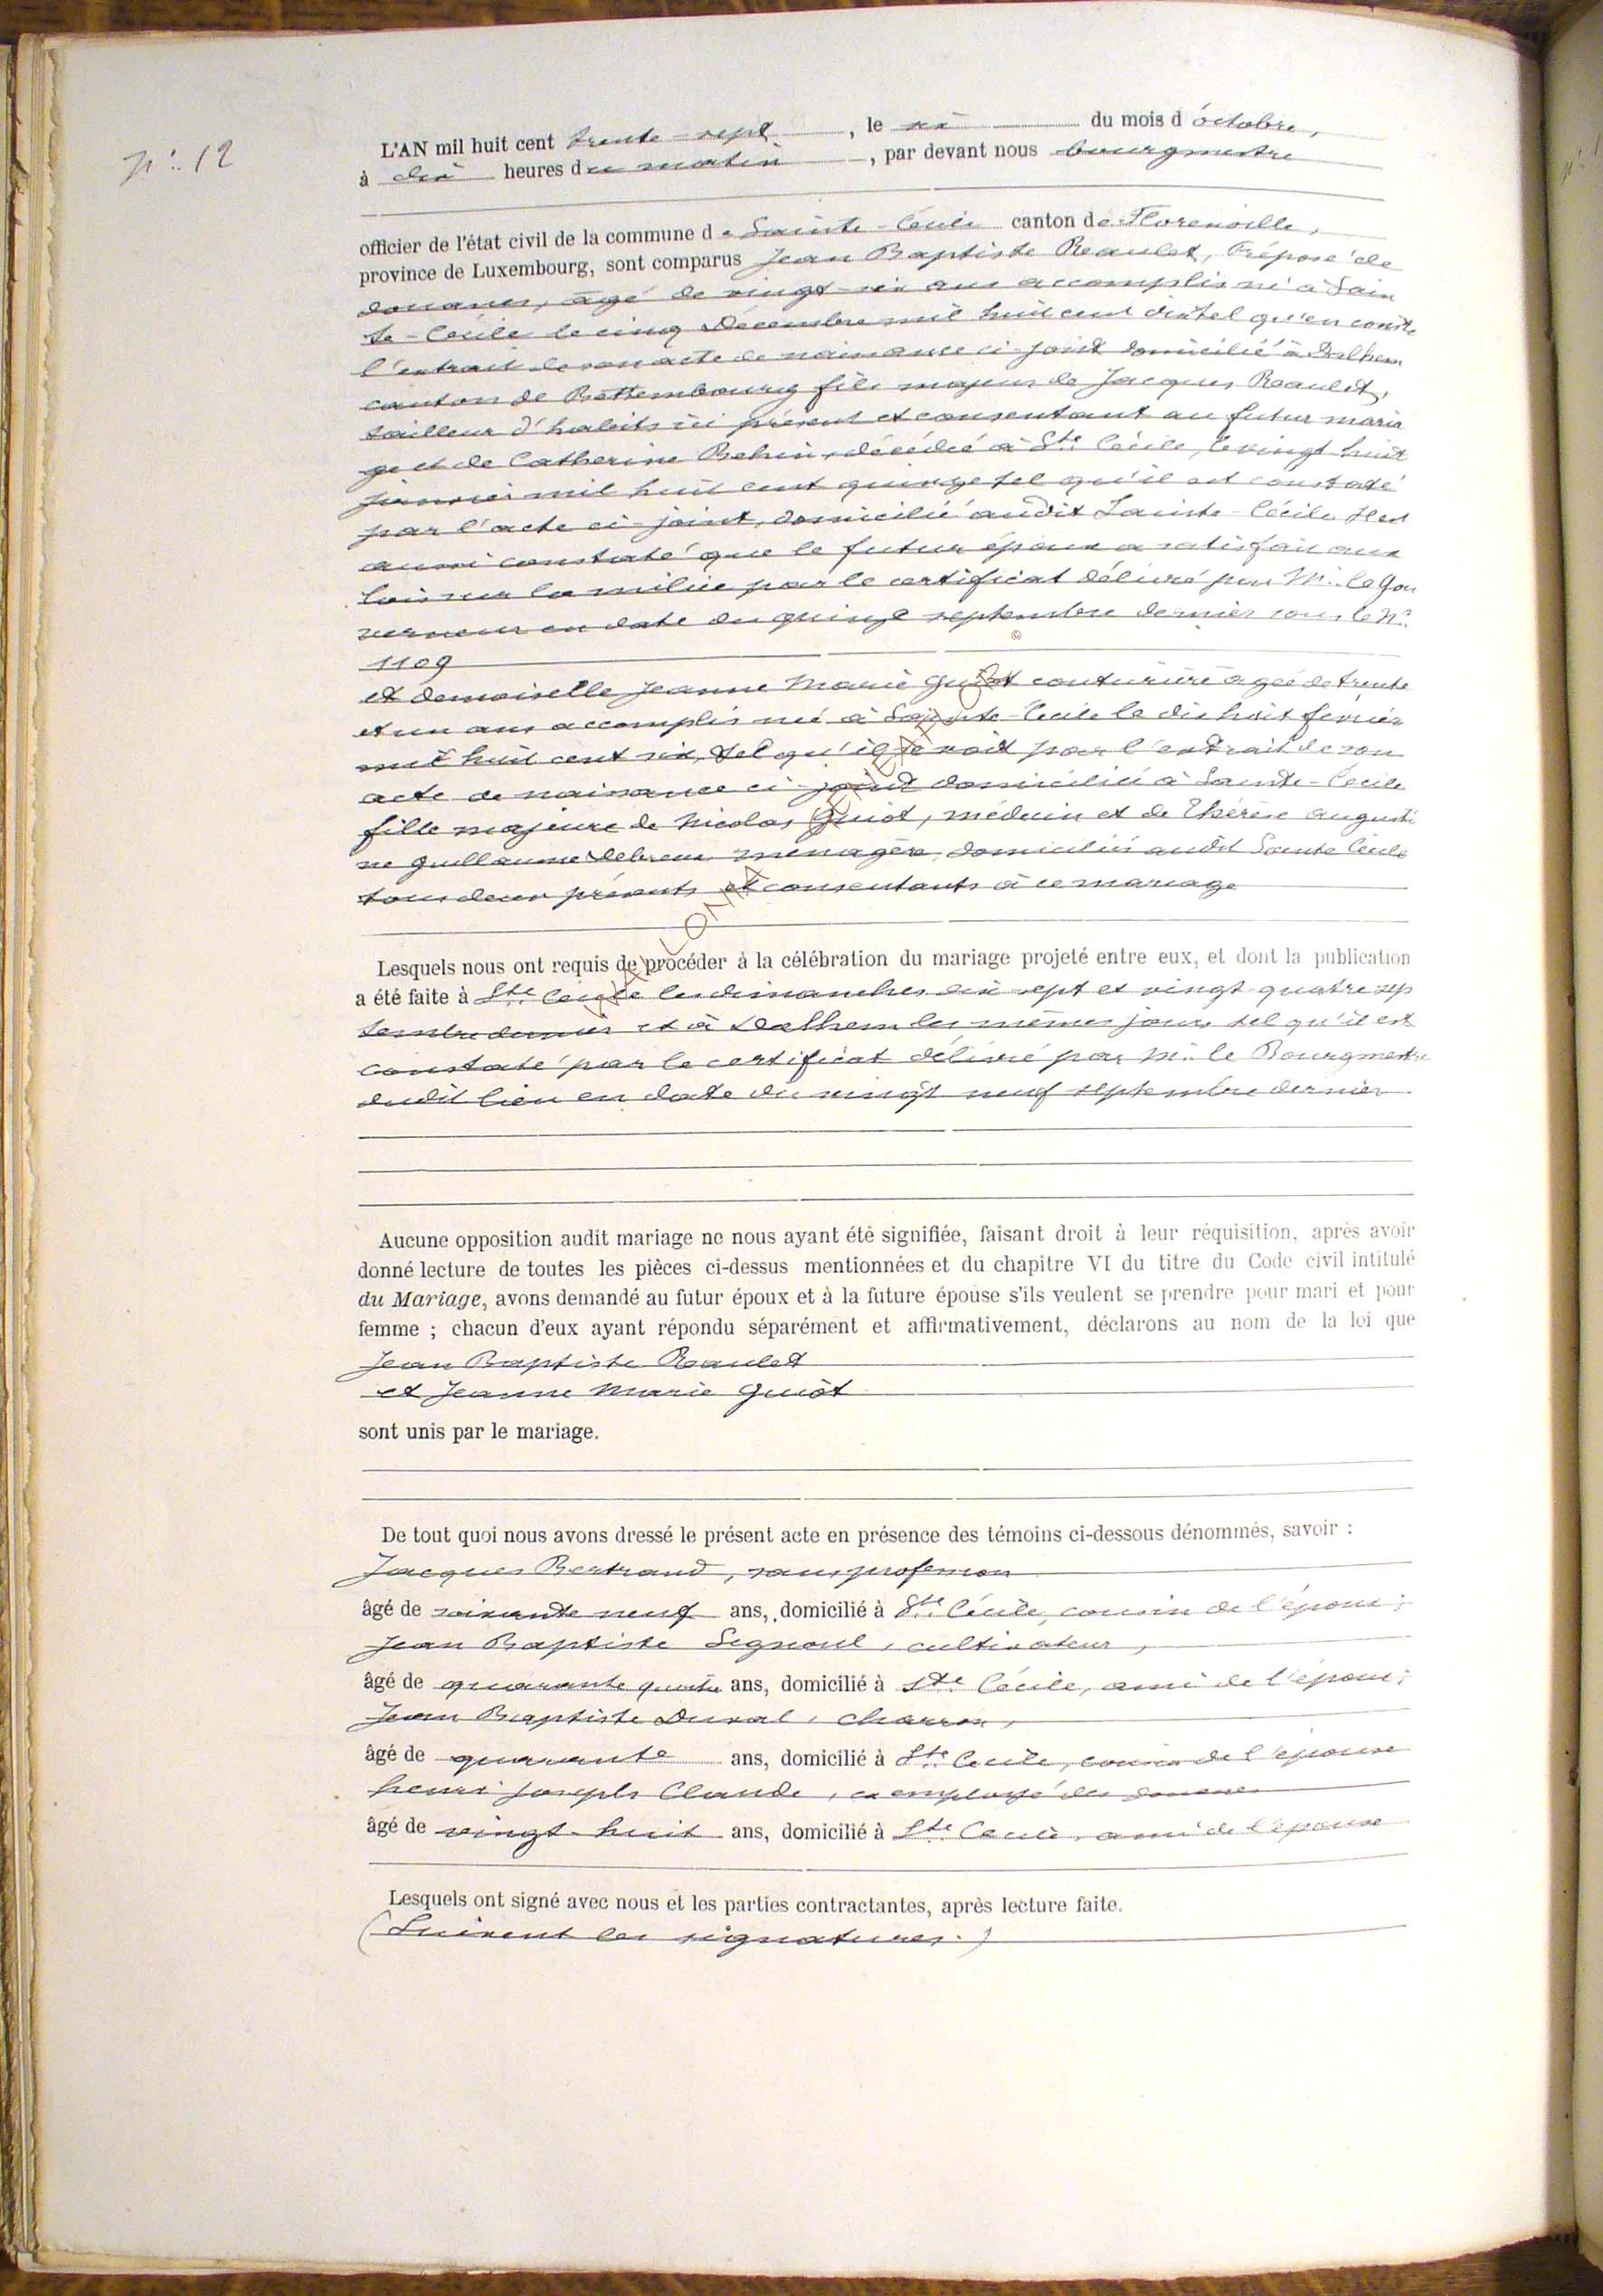 N°. 12
L'AN mil huit cent trente-sept, le six du mois d'octobre,
à dix heures du matin, par devant nous bourgmestre
officier de l'état civil de la commune de Sainte-Cécile canton de Florenville,
province de Luxembourg, sont comparus Jean Baptiste Reaulet, Préposé de
douanes, âgé de vingt-six ans accomplis né à Sain
te-Cécile le cinq Décembre mil huit cent dix tel qu'en conste
l'extrait de son acte de naissance ci-joint domicilié à Dalhem
canton de Bettembourg fils majeur de Jacques Reaulet,
tailleur d'habits ici présent et consentant au futur maria
ge et de Catherine Behin, décédée à Ste Cécile, le vingt huit
janvier mil huit cent quinze tel qu'il est constaté
par l'acte ci-joint, domicilié audit Sainte-Cécile Il est
aussi constaté que le futur époux a satisfait aux
lois sur la milice par le certificat délivré par Mr. le Gou
verneur en date du quinze septembre dernier sous le N°.
1109
et demoiselle Jeanne Marie Guiot couturière âgée de trente
et un ans accomplis née à Sainte-Cécile le dix huit février
mil huit cent six, tel qu'il se voit par l'extrait de son
acte de naissance ci-joint domiciliée à Sainte-Cécile
fille majeure de Nicolas Guiot, médecin et de Thérèse Augusti
ne Guillaume ménagère, domiciliés audit Sainte Cécile
tous deux présents et consentants à ce mariage
Lesquels nous ont requis de procéder à la célébration du mariage projeté entre eux, et dont la publication
a été faite à Ste Cécile les dimanches dix sept et vingt-quatre sep
tembre dernier et à Dalhem les mêmes jours tel qu'il est
constaté par le certificat délivré par Mr. le Bourgmestre
dudit lieu en date du vingt neuf septembre dernier
Aucune opposition audit mariage ne nous ayant été signifiée, faisant droit à leur réquisition, après avoir
donné lecture de toutes les pièces ci-dessus mentionnées et du chapitre VI du titre du Code civil intitulé
du Mariage, avons demandé au futur époux et à la future épouse s'ils veulent se prendre pour mari et pour
femme ; chacun d'eux ayant répondu séparément et affirmativement, déclarons au nom de la loi que
Jean Baptiste Reaulet
et Jeanne Marie Guiot
sont unis par le mariage.
De tout quoi nous avons dressé le présent acte en présence des témoins ci-dessous dénommés, savoir :
Jacques Bertrand, sans profession
âgé de soixante neuf ans, domicilié à Ste Cécile, cousin de l'époux ;
Jean Baptiste Signoul, cultivateur,
âgé de quarante quatre ans, domicilié à Ste Cécile, ami de l'époux ;
Jean Baptiste Duval, charron,
âgé de quarante ans, domicilié à Ste Cécile, cousin de l'épouse
henri joseph Claude, ex employé des douanes
âgé de vingt-huit ans, domicilié à Ste Cécile, ami de l'épouse
Lesquels ont signé avec nous et les parties contractantes, après lecture faite.
(Suivent les signatures.)